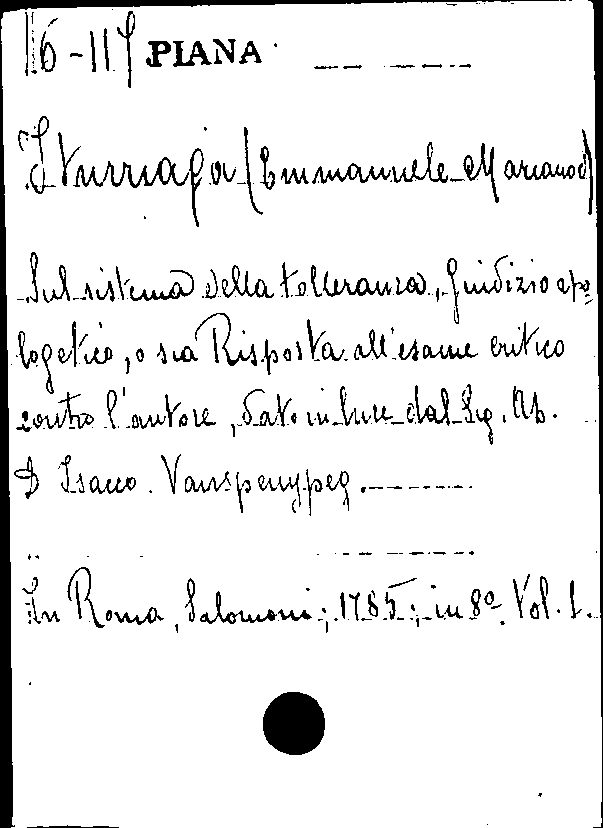 116-117 PIANA
Iturriaga (Emmanuele Mariano d
Sul sistema della tolleranza, Giudizio apo
logetico, o sia Risposta all'esame critico
contro l'autore, dato in luce dal Sig. Ab.
D Isacco
In Roma, Salomoni; 1785; in 8º. Vol. 1.